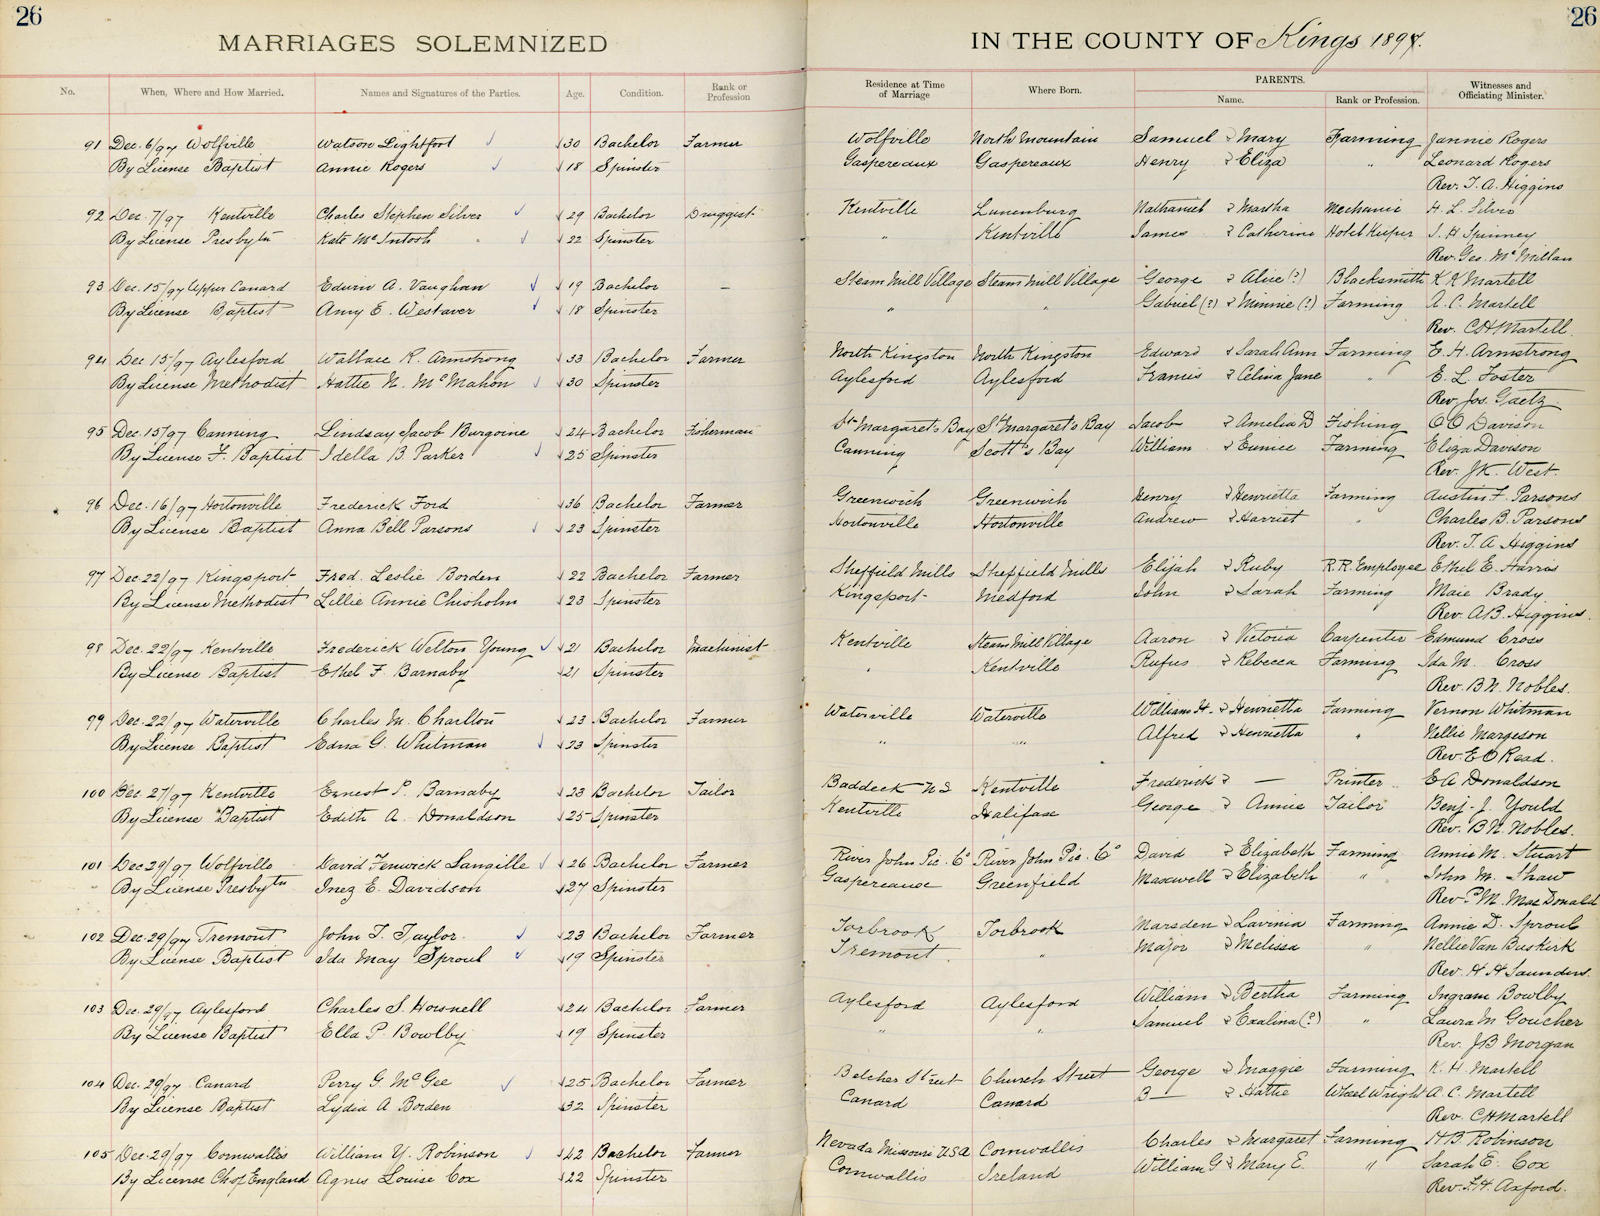 26
26
MARRIAGES SOLEMNIZED
IN THE COUNTY OF Kings 1897.
No. When, Where and How Married. Names and Signatures of the Parties. Age. Condition. Rank or Profession Residence at Time of Marriage Where Born. PARENTS. Name. Rank or Profession. Witnesses and Officiating Minister.
91 Dec. 6/97 Wolfville Watson Lightfoot 30 Bachelor Farmer Wolfville North Mountain Samuel & Mary Farming Jannie Rogers
By License Baptist Annie Rogers 18 Spinster Gaspereaux Gaspereaux Henry & Eliza " Leonard Rogers
Rev. T. A. Higgins
92 Dec. 7/97 Kentville Charles Stephen Silver 29 Bachelor Druggist Kentville Lunenburg Nathaniel & Martha Mechanic H. L. Silver
By License Presbytn Kate McIntosh 22 Spinster " Kentville James & Catherine Hotel Keeper S. H Spinney
Rev. Geo. McMillan
93 Dec. 15/97 Upper Canard Edwin A. Vaughan 19 Bachelor – Steam Mill Village Steam Mill Village George & Alice (?) Blacksmith K K Martell
By License Baptist Amy E. Westaver 18 Spinster " " Gabriel (?) & Minnie (?) Farming A. C. Martell
Rev. C H Martell
94 Dec 15/97 Aylesford Wallace R. Armstrong 33 Bachelor Farmer North Kingston North Kingston Edward & Sarah Ann Farming E. H. Armstrong
By License Methodist Hattie N. McMahon 30 Spinster Aylesford Aylesford Francis & Celina Jane " E. L. Foster
Rev. Jos. Gaetz
95 Dec. 15/97 Canning Lindsay Jacob Burgoine 24 Bachelor Fisherman St Margaret's Bay St Margaret's Bay Jacob & Amelia D Fishing O O Davison
By License F. Baptist Idella B Parker 25 Spinster Canning Scott's Bay William & Eunice Farming Eliza Davison
Rev. J K. West.
96 Dec. 16/97 Hortonville Frederick Ford 36 Bachelor Farmer Greenwich Greenwich Henry & Henrietta Farming Austin F. Parsons
By License Baptist Anna Bell Parsons 23 Spinster Hortonville Hortonville Andrew & Harriet " Charles B. Parsons
Rev. T. A Higgins
97 Dec 22/97 Kingsport Fred. Leslie Borden 22 Bachelor Farmer Sheffield Mills Sheffield Mills Elijah & Ruby R.R. Employee Ethel E. Harris
By License Methodist Lillie Annie Chisholm 23 Spinster Kingsport Medford John & Sarah Farming Maie Brady
Rev. A B. Higgins.
98 Dec. 22/97 Kentville Frederick Welton Young 21 Bachelor Machinist Kentville Steam Mill Village Aaron & Victoria Carpenter Edmund Cross
By License Baptist Ethel F. Barnaby 21 Spinster " Kentville Rufus & Rebecca Farming Ida M. Cross
Rev. B N. Nobles.
99 Dec. 22/97 Waterville Charles M. Charlton 23 Bachelor Farmer Waterville Waterville William H. & Henrietta Farming Vernon Whitman
By License Baptist Edna G. Whitman 23 Spinster " " Alfred & Henrietta " Nellie Margeson
Rev. E O Read.
100 Dec 27/97 Kentville Ernest P. Barnaby 23 Bachelor Tailor Baddeck N S Kentville Frederick & — Printer E A Donaldson
By License Baptist Edith A. Donaldson 25 Spinster Kentville Halifax George & Annie Tailor Benj. J. Yould
Rev. B N. Nobles.
101 Dec 29/97 Wolfville David Fenwick Langille 26 Bachelor Farmer River John Pic. Co River John Pic. Co David & Elizabeth Farming Annie M. Stuart
By License Presbytn Inez E. Davidson 27 Spinster Gaspereaux Greenfield Maxwell & Elizabeth " John M. Shaw
Rev. P. M. MacDonald
102 Dec. 29/97 Tremont John T. Taylor 23 Bachelor Farmer Torbrook Torbrook Marsden & Lavinia Farming Annie D. Sproul
By License Baptist Ida May Sproul 19 Spinster Tremont. " Major & Melissa " Nellie Van Buskirk
Rev. H H Saunders.
103 Dec. 29/97 Aylesford Charles S. Hownell 24 Bachelor Farmer Aylesford Aylesford William & Bertha Farming Ingram Bowlby
By License Baptist Ella P. Bowlby 19 Spinster " " Samuel & Exalina (?) " Laura M Goucher
Rev. J B Morgan
104 Dec. 29/97 Canard Perry G McGee 25 Bachelor Farmer Belcher Street Church Street George & Maggie Farming K. H. Martell
By License Baptist Lydia A Borden 32 Spinster Canard Canard B— & Hattie Wheel Wright A. C. Martell
Rev. C H Martell
105 Dec. 29/97 Cornwallis William Y. Robinson 42 Bachelor Farmer Nevada Missouri U.S.A Cornwallis Charles & Margaret Farming H B. Robinson
By License Ch of England Agnes Louise Cox 22 Spinster Cornwallis Ireland William G & Mary E. " Sarah E. Cox
Rev. F. H. Axford.